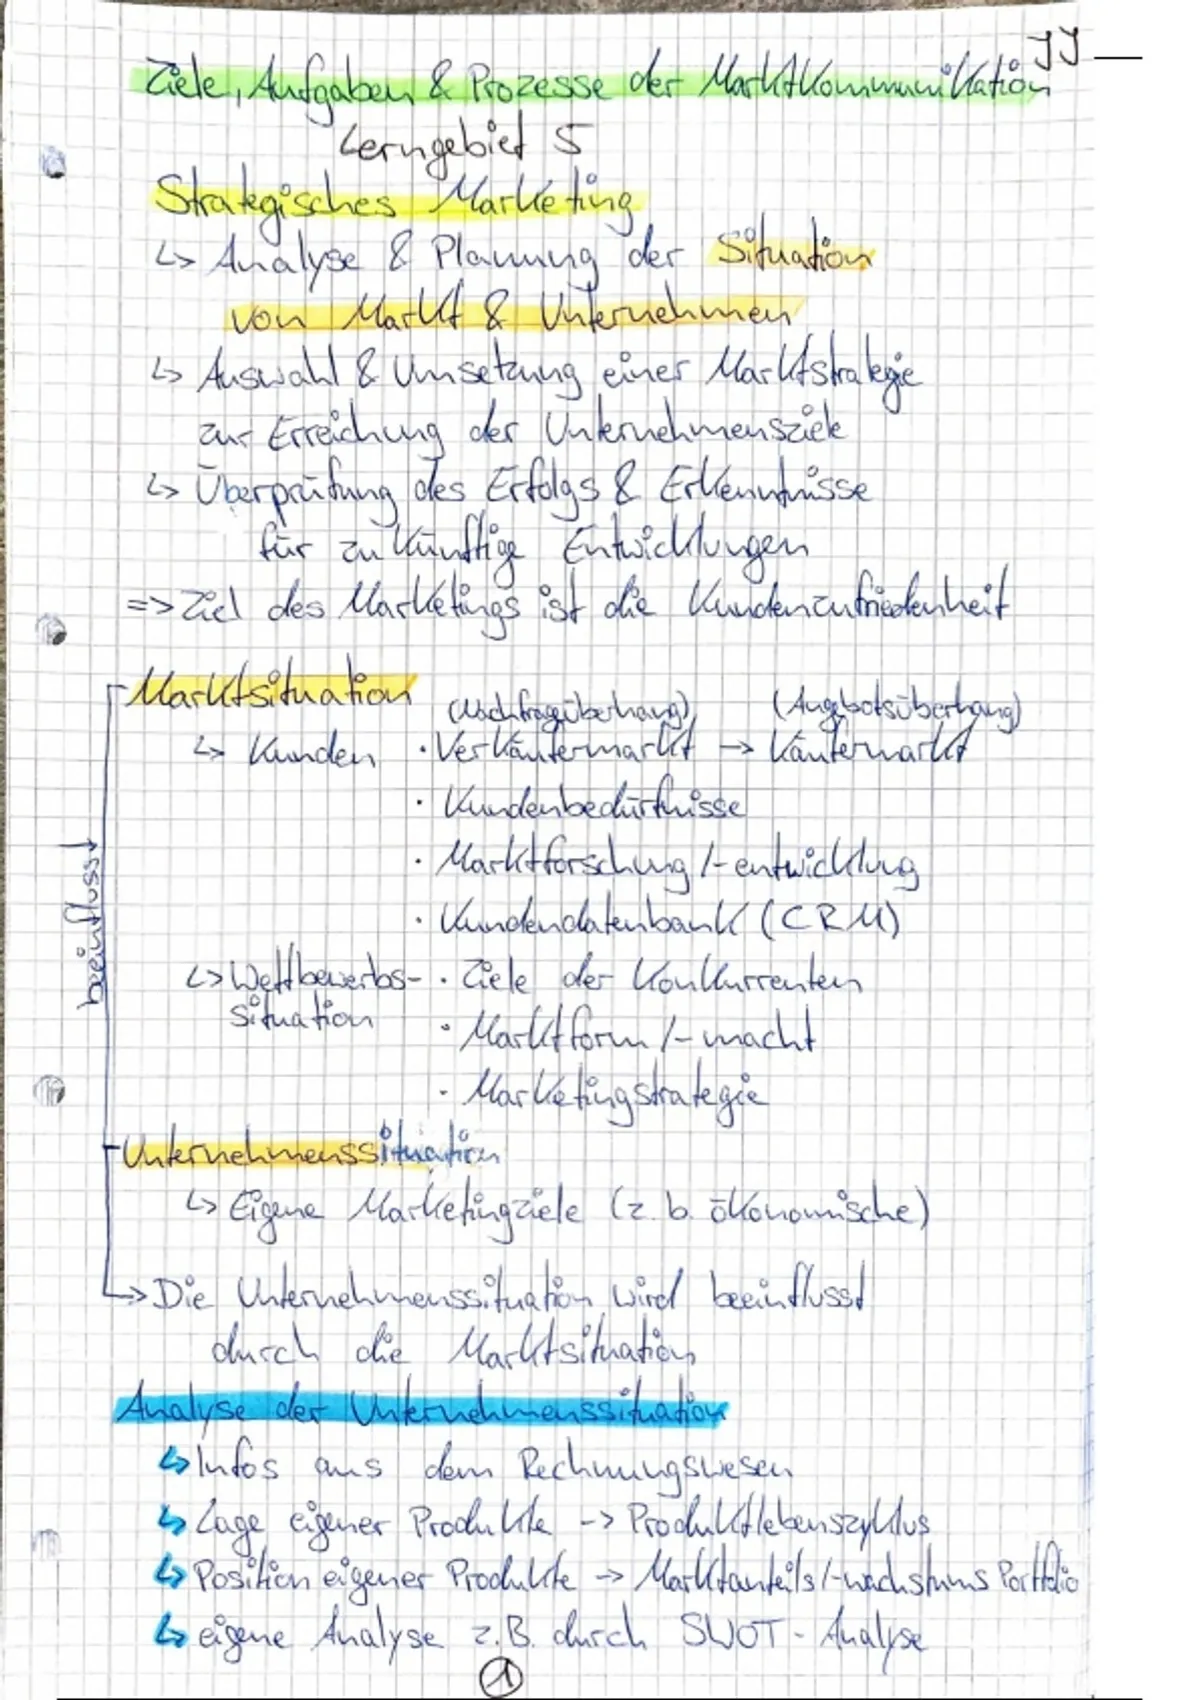 JJ
Ziele, Aufgaben & Prozesse der Marktkommunikation
Lerngebiet 5
Strategisches Marketing
↳ Analyse & Planung der Situation
von Markt & Unternehmen
↳ Auswahl & Umsetzung einer Marktstrategie
zur Erreichung der Unternehmensziele
↳ Überprüfung des Erfolgs & Erkenntnisse
für zukünftige Entwicklungen
=> Ziel des Marketings ist die Kundenzufriedenheit
Marktsituation
(Nachfrageüberhang) (Angebotsüberhang)
↳ Kunden · Verkäufermarkt → Käufermarkt
· Kundenbedürfnisse
· Marktforschung /-entwicklung
· Kundendatenbank (CRM)
beeinflusst
↳ Wettbewerbs- · Ziele der Konkurrenten
situation
· Marktform /-macht
· Marketingstrategie
Unternehmenssituation
↳ Eigene Marketingziele (z.b. ökonomische)
↳ Die Unternehmenssituation wird beeinflusst
durch die Marktsituation
Analyse der Unternehmenssituation
↳ Infos aus dem Rechnungswesen
↳ Lage eigener Produkte -> Produktlebenszyklus
↳ Position eigener Produkte → Marktanteils/-wachstums Portfolio
↳ eigene Analyse z.B. durch SWOT-Analyse
1